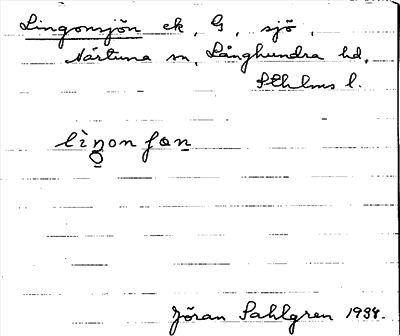 Lingonsjön ek, G, sjö,
Närtuna sn, Långhundra hd,
Sthlms l.
lìŋon ʃøn
Jöran Sahlgren 1934.